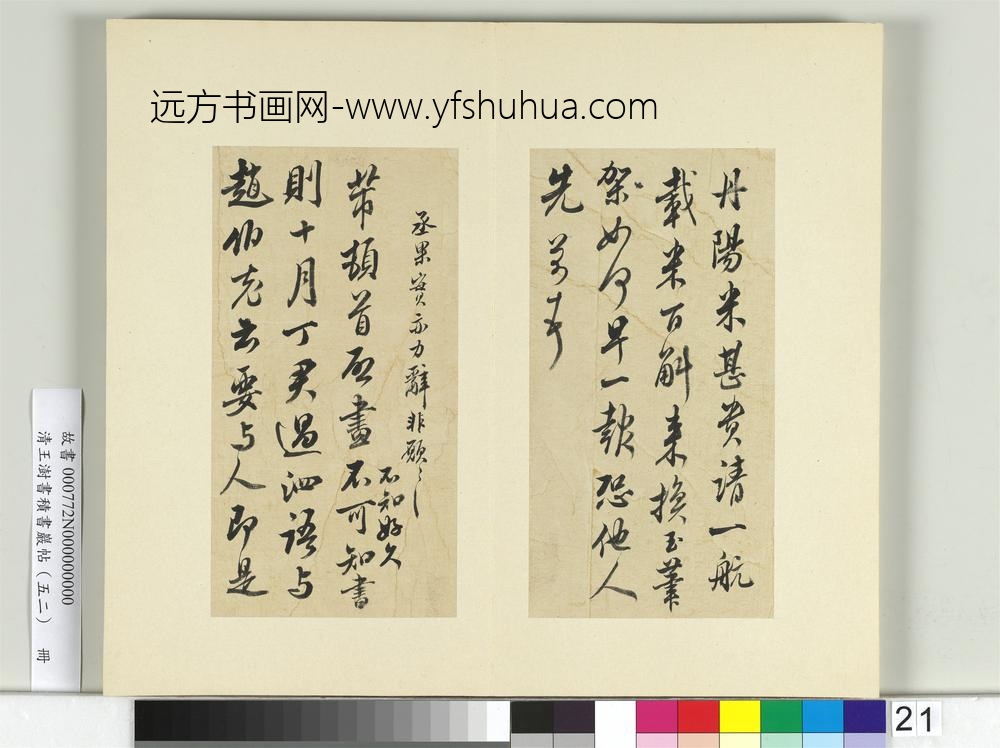 远方书画网-www.yfshuhua.com
丹陽米甚貴請一航
載米百斛来換玉筆
架如何早一報恐他人
先
丞果實亦力辭非願
芾頓首啓畫不可知書
不知好久
則十月丁君過泗語与
趙伯充云要与人即是
故書 000772N000000000
清王澍書積書巖帖（五二） 冊
21